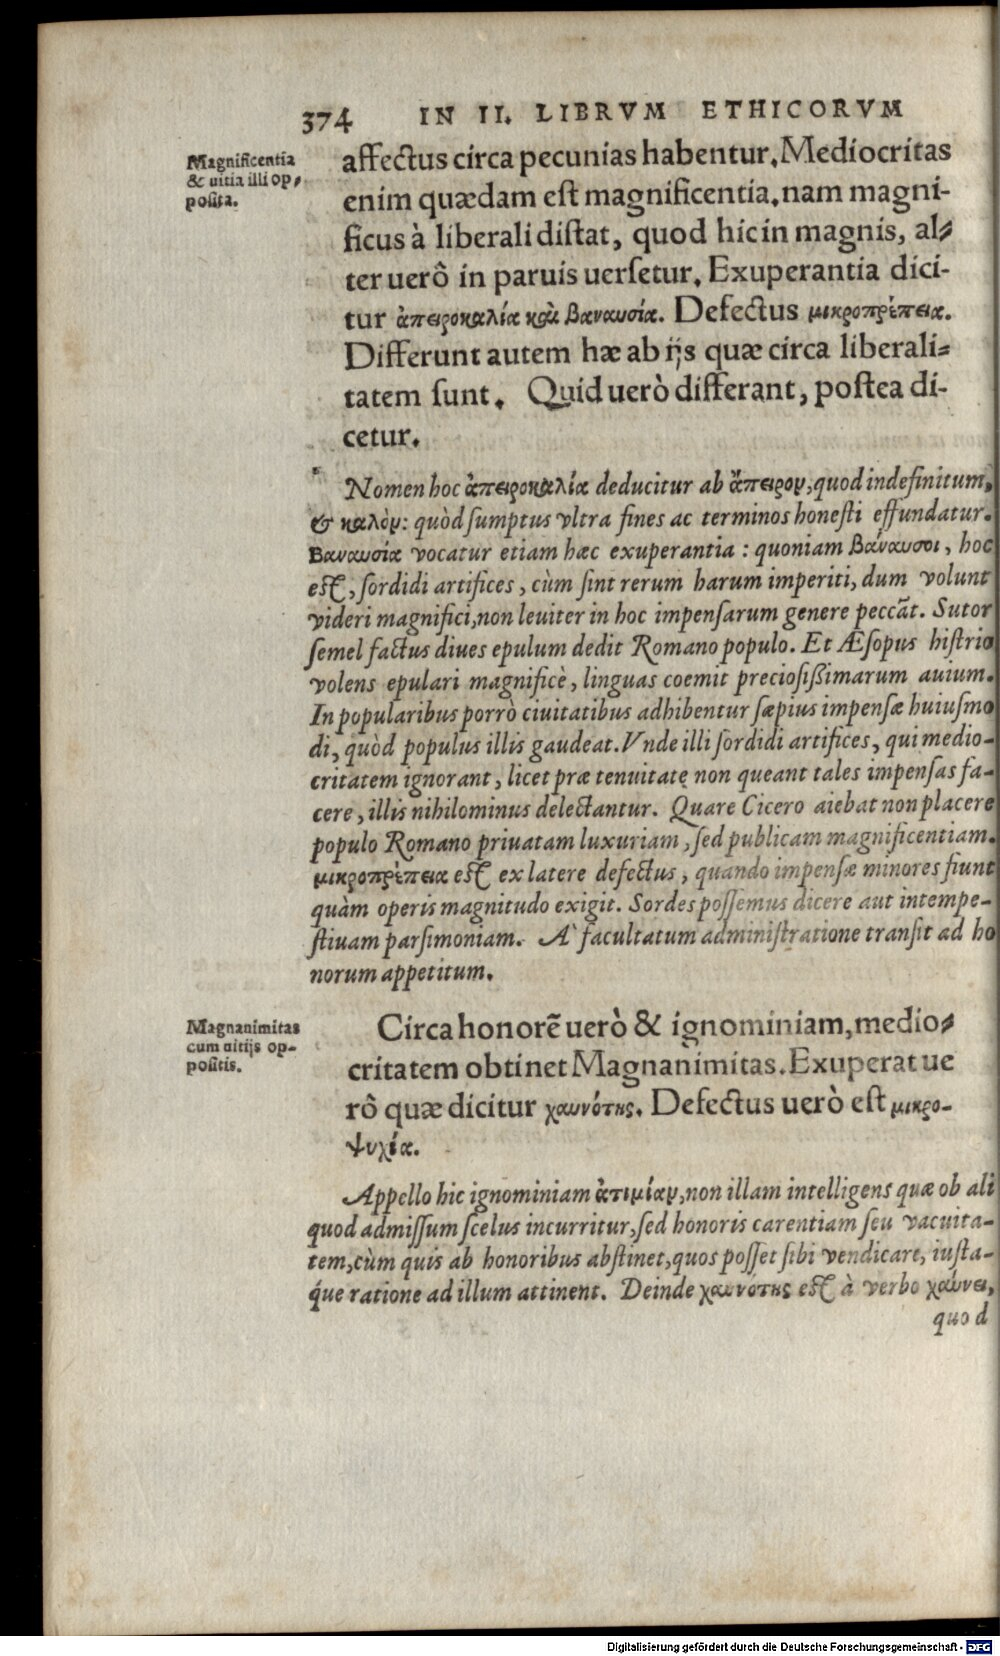 374 IN II. LIBRVM ETHICORVM
Magnificentia
& uitia illi op-
posita.
affectus circa pecunias habentur. Mediocritas
enim quædam est magnificentia, nam magni-
ficus à liberali distat, quod hic in magnis, al-
ter uerô in paruis uersetur. Exuperantia dici-
tur ἀπειροκαλία καὶ βαναυσία. Defectus μικροπρέπεια.
Differunt autem hæ ab ijs quæ circa liberali-
tatem sunt. Quid uerò differant, postea di-
cetur.
Nomen hoc ἀπειροκαλία deducitur ab ἄπειρον, quod indefinitum,
& καλὸν: quòd sumptus vltra fines ac terminos honesti effundatur.
Βαναυσία vocatur etiam hæc exuperantia: quoniam βάναυσοι, hoc
est, sordidi artifices, cùm sint rerum harum imperiti, dum volunt
videri magnifici, non leuiter in hoc impensarum genere peccāt. Sutor
semel factus diues epulum dedit Romano populo. Et Æsopus histrio
volens epulari magnificè, linguas coemit preciosißimarum auium.
In popularibus porrò ciuitatibus adhibentur sæpius impensæ huiusmo
di, quòd populus illis gaudeat. Vnde illi sordidi artifices, qui medio-
critatem ignorant, licet præ tenuitate non queant tales impensas fa-
cere, illis nihilominus delectantur. Quare Cicero aiebat non placere
populo Romano priuatam luxuriam, sed publicam magnificentiam.
μικροπρέπεια est ex latere defectus, quando impensæ minores fiunt
quàm operis magnitudo exigit. Sordes possemus dicere aut intempe-
stiuam parsimoniam. A` facultatum administratione transit ad ho
norum appetitum.
Magnanimitas
cum uitijs op-
positis.
Circa honorē uerò & ignominiam, medio-
critatem obtinet Magnanimitas. Exuperat ue
rô quæ dicitur χαυνότης. Defectus uerò est μικρο-
ψυχία.
Appello hic ignominiam ἀτιμίαν, non illam intelligens quæ ob ali
quod admissum scelus incurritur, sed honoris carentiam seu vacuita-
tem, cùm quis ab honoribus abstinet, quos posset sibi vendicare, iusta-
q́ue ratione ad illum attinent. Deinde χαυνότης est à verbo χαύνει,
quo d
Digitalisierung gefördert durch die Deutsche Forschungsgemeinschaft - DFG